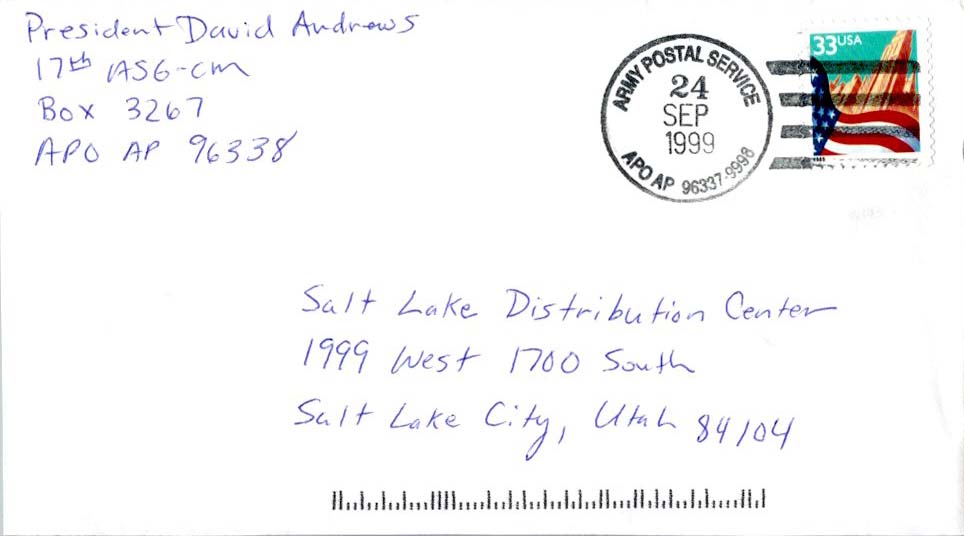 President David Andrews
17th ASG-CM
Box 3267
APO AP 96338
ARMY POSTAL SERVICE
24
SEP
1999
APO AP 96337-9998
33USA
Salt Lake Distribution Center
1999 West 1700 South
Salt Lake City, Utah 84104